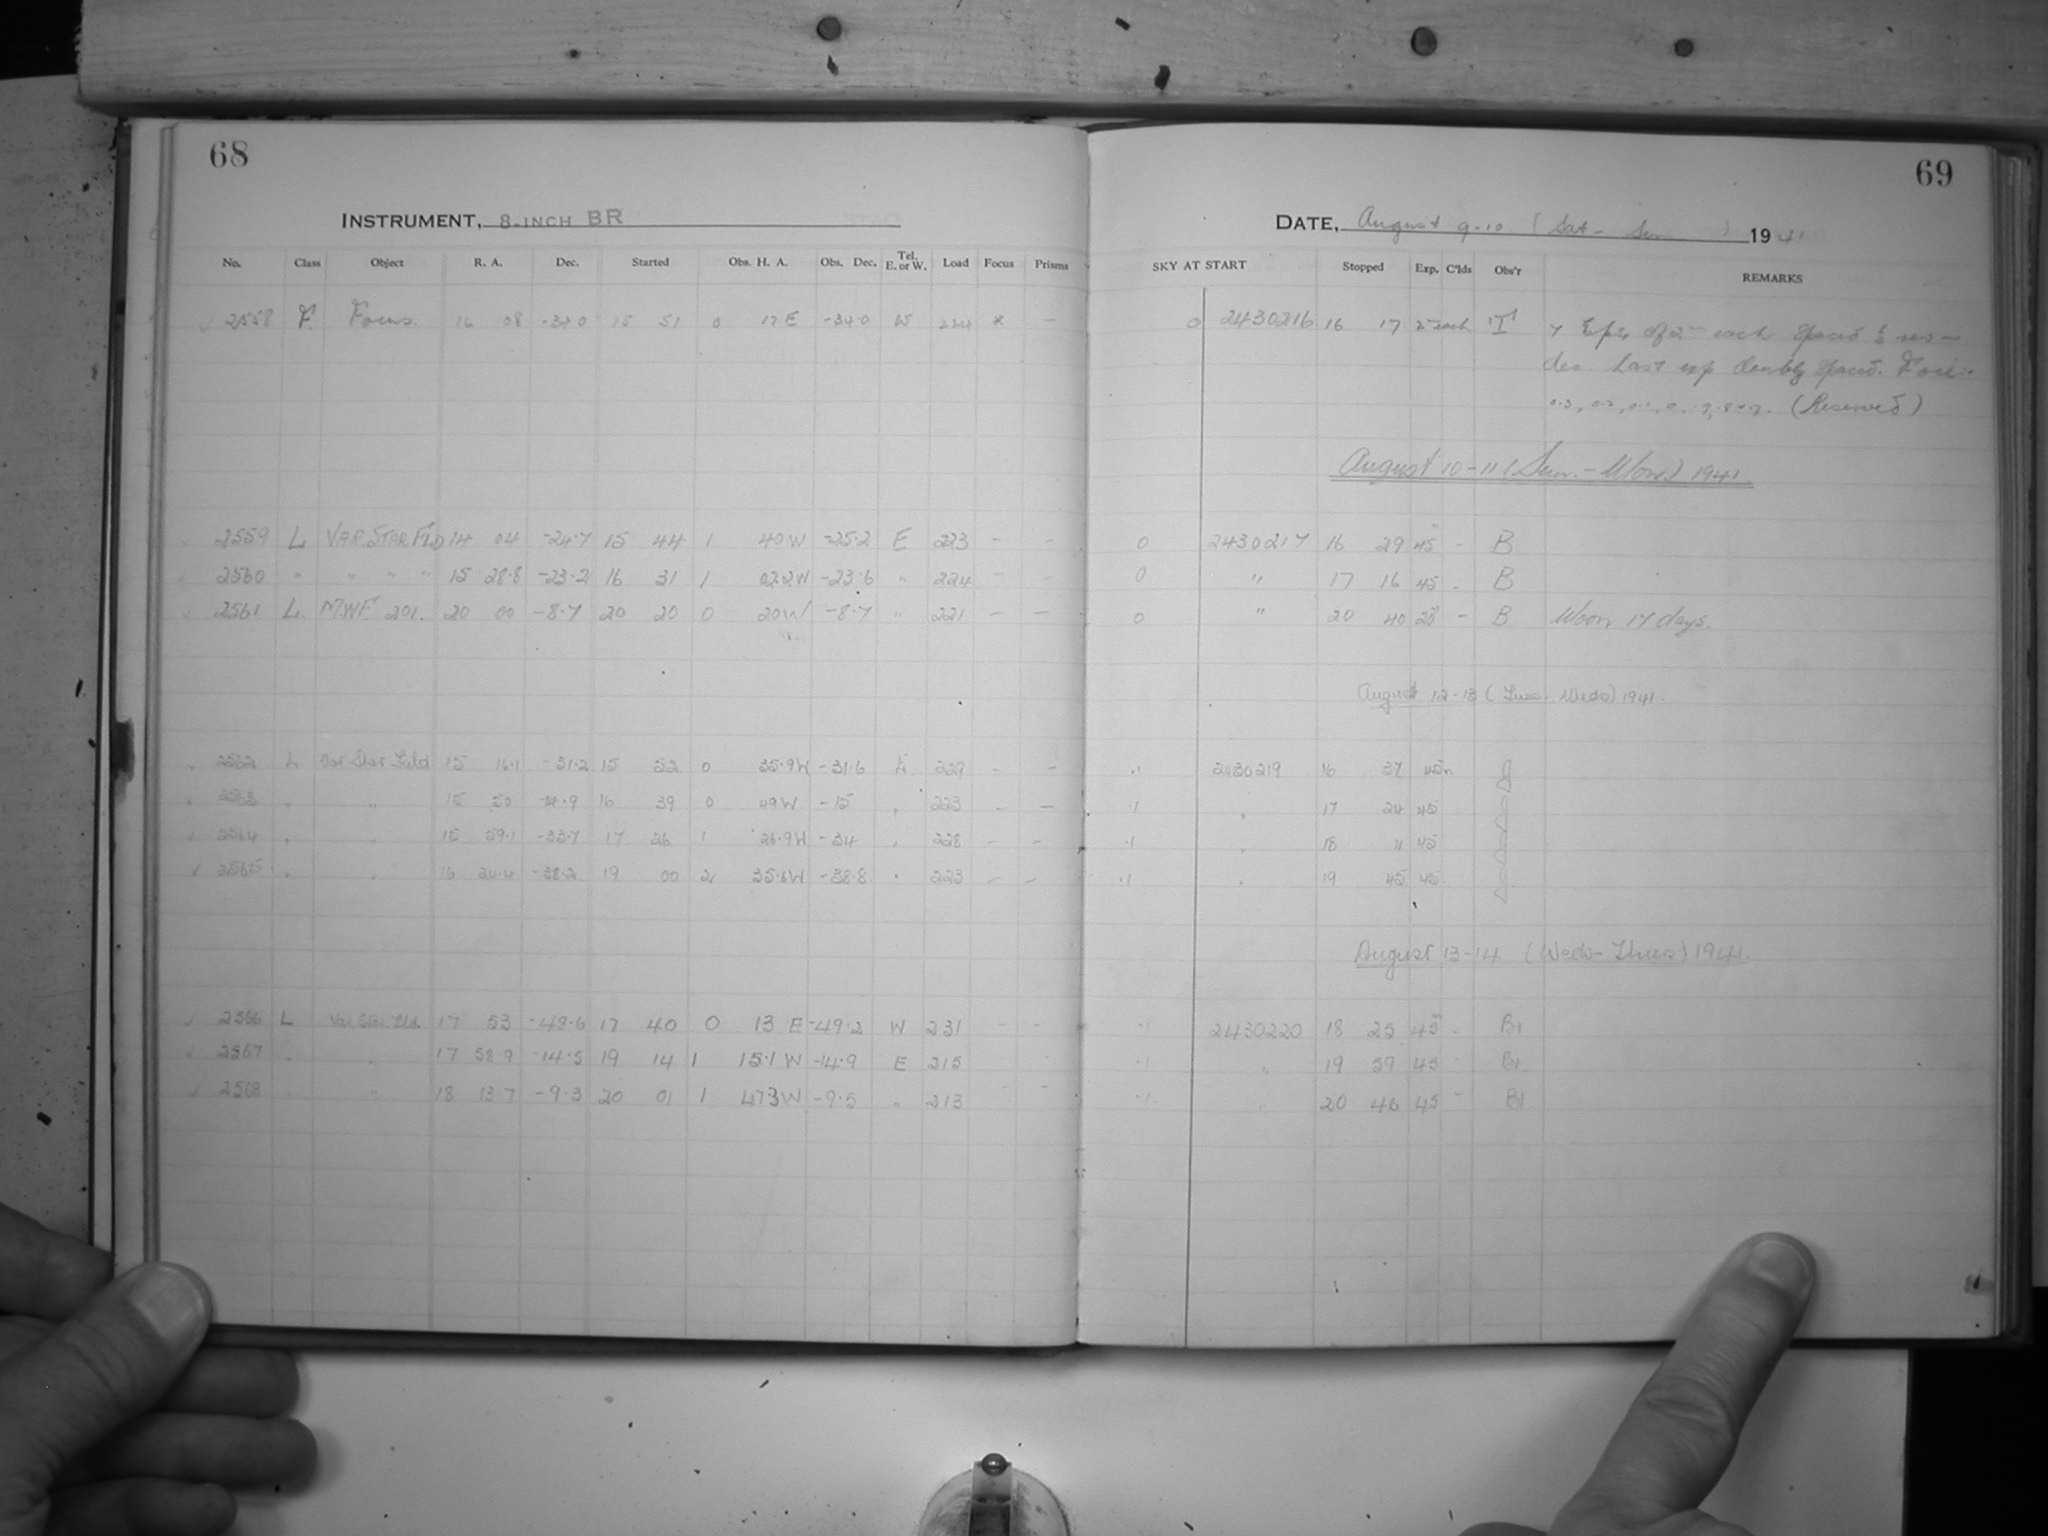 68
69
INSTRUMENT, 8-INCH BR
DATE, August 9-10 (Sat - Sun ) 1941
No. Class Object R. A. Dec. Started Obs. H. A. Obs. Dec. Tel. E. or W. Load Focus Prisms SKY AT START Stopped Exp. C'lds Obs'r REMARKS
2558 F. Focus. 16 08 -34 0 15 51 0 17 E -34 0 W 224 * — 0 2430216 16 17 2m each T 7 Exps of 2m each spaced
dec. Last exp doubly spaced. Foci:-
0.3, 0.2, 0.1, 0, (Reserved)
August 10-11 (Sun.-Mon.) 1941
2559 L VAR. STAR FLD 14 04 -24.7 15 44 1 40 W -25.2 E 223 - - 0 2430217 16 29 45 - B
2560 " " " " 15 28.8 -23.2 16 31 1 02.2W -23.6 " 224 - - 0 " 17 16 45 - B
2561 L. MWF. 201. 20 00 -8.7 20 20 0 20W -8.7 " 221 - - 0 " 20 40 20 - B Moon 17 days.
August 12-13 (Tues. Weds) 1941.
2562 L Var Star Field 15 16.1 -31.2 15 52 0 35.9W -31.6 E 229 - - .1 2430219 16 37 45m
2563 . " 15 50 -14.9 16 39 0 49W -15 . 223 - - .1 " 17 24 45
2564 . " 15 59.1 -33.7 17 26 1 26.9W -34 . 228 - - .1 " 18 11 45
2565 . . 16 24.4 -38.2 19 00 2 35.6W -38.8 . 223 - - .1 " 19 45 45
August 13-14 (Weds-Thurs) 1941.
2566 L Var. Star. Fld. 17 53 -48.6 17 40 0 13 E -49.2 W 231 - - .1 2430220 18 25 45 - Bl
2567 . . 17 58.9 -14.5 19 14 1 15.1 W -14.9 E 215 .1 " 19 59 45 - Bl.
2568 . " 18 13.7 -9.3 20 01 1 47.3W -9.5 " 213 - - .1 " 20 46 45 - Bl.